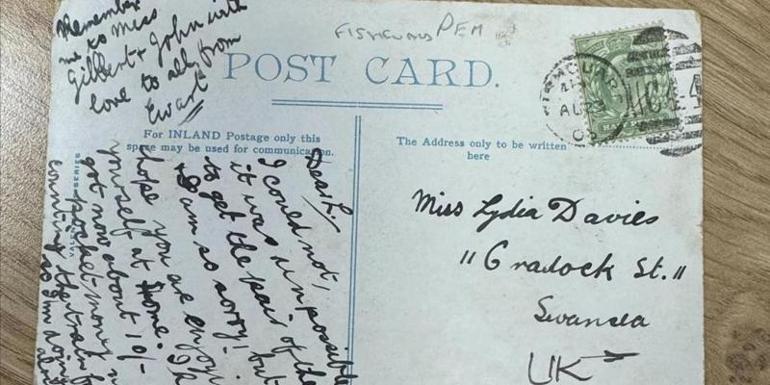 Remember
me to Miss
Gilbert & John with
love to all from
Ewart
FISHGUARD PEM
POST CARD.
For INLAND Postage only this
space may be used for communication.
The Address only to be written
here
Dear L,
I could not,
it was unpossible
to get the pair of the
& I am so sorry! but
hope you are enjoy
yourself at home. I h
got now about 10/-
pocket money
counting the train f
so I'm doin
SERIES
AU 23
Miss Lydia Davies
"Cradock St."
Swansea
UK